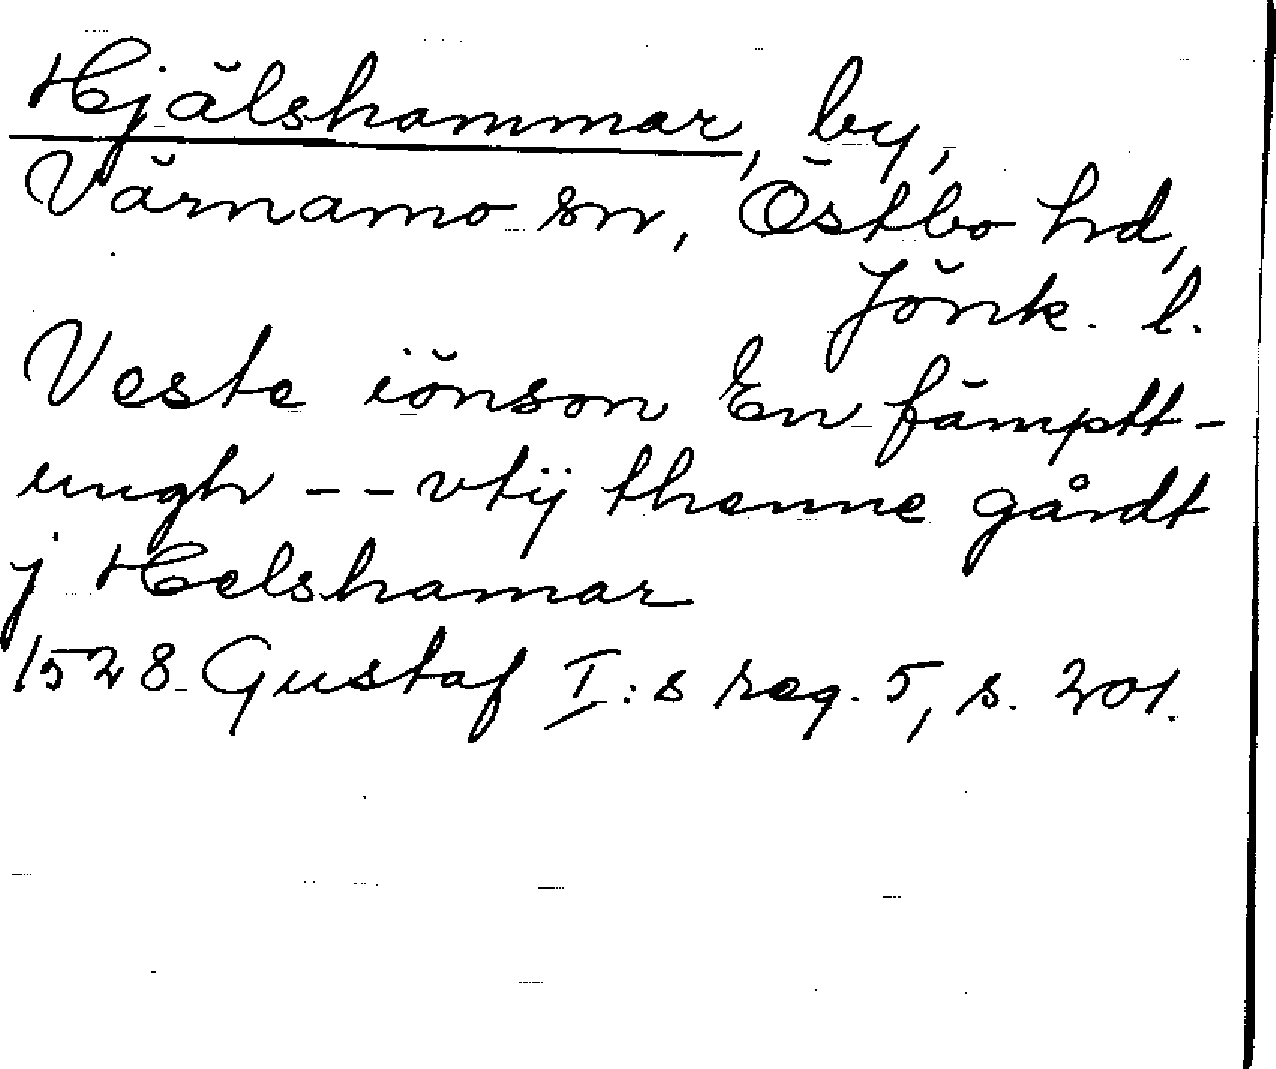 Hjälshammar, by,
Värnamo sn, Östbo hd,
Jönk. l.
Veste iönson En fämptt-
ungh -- vtij thenne gårdt
j Helshamar
1528 Gustaf I:s reg. 5, s. 201.